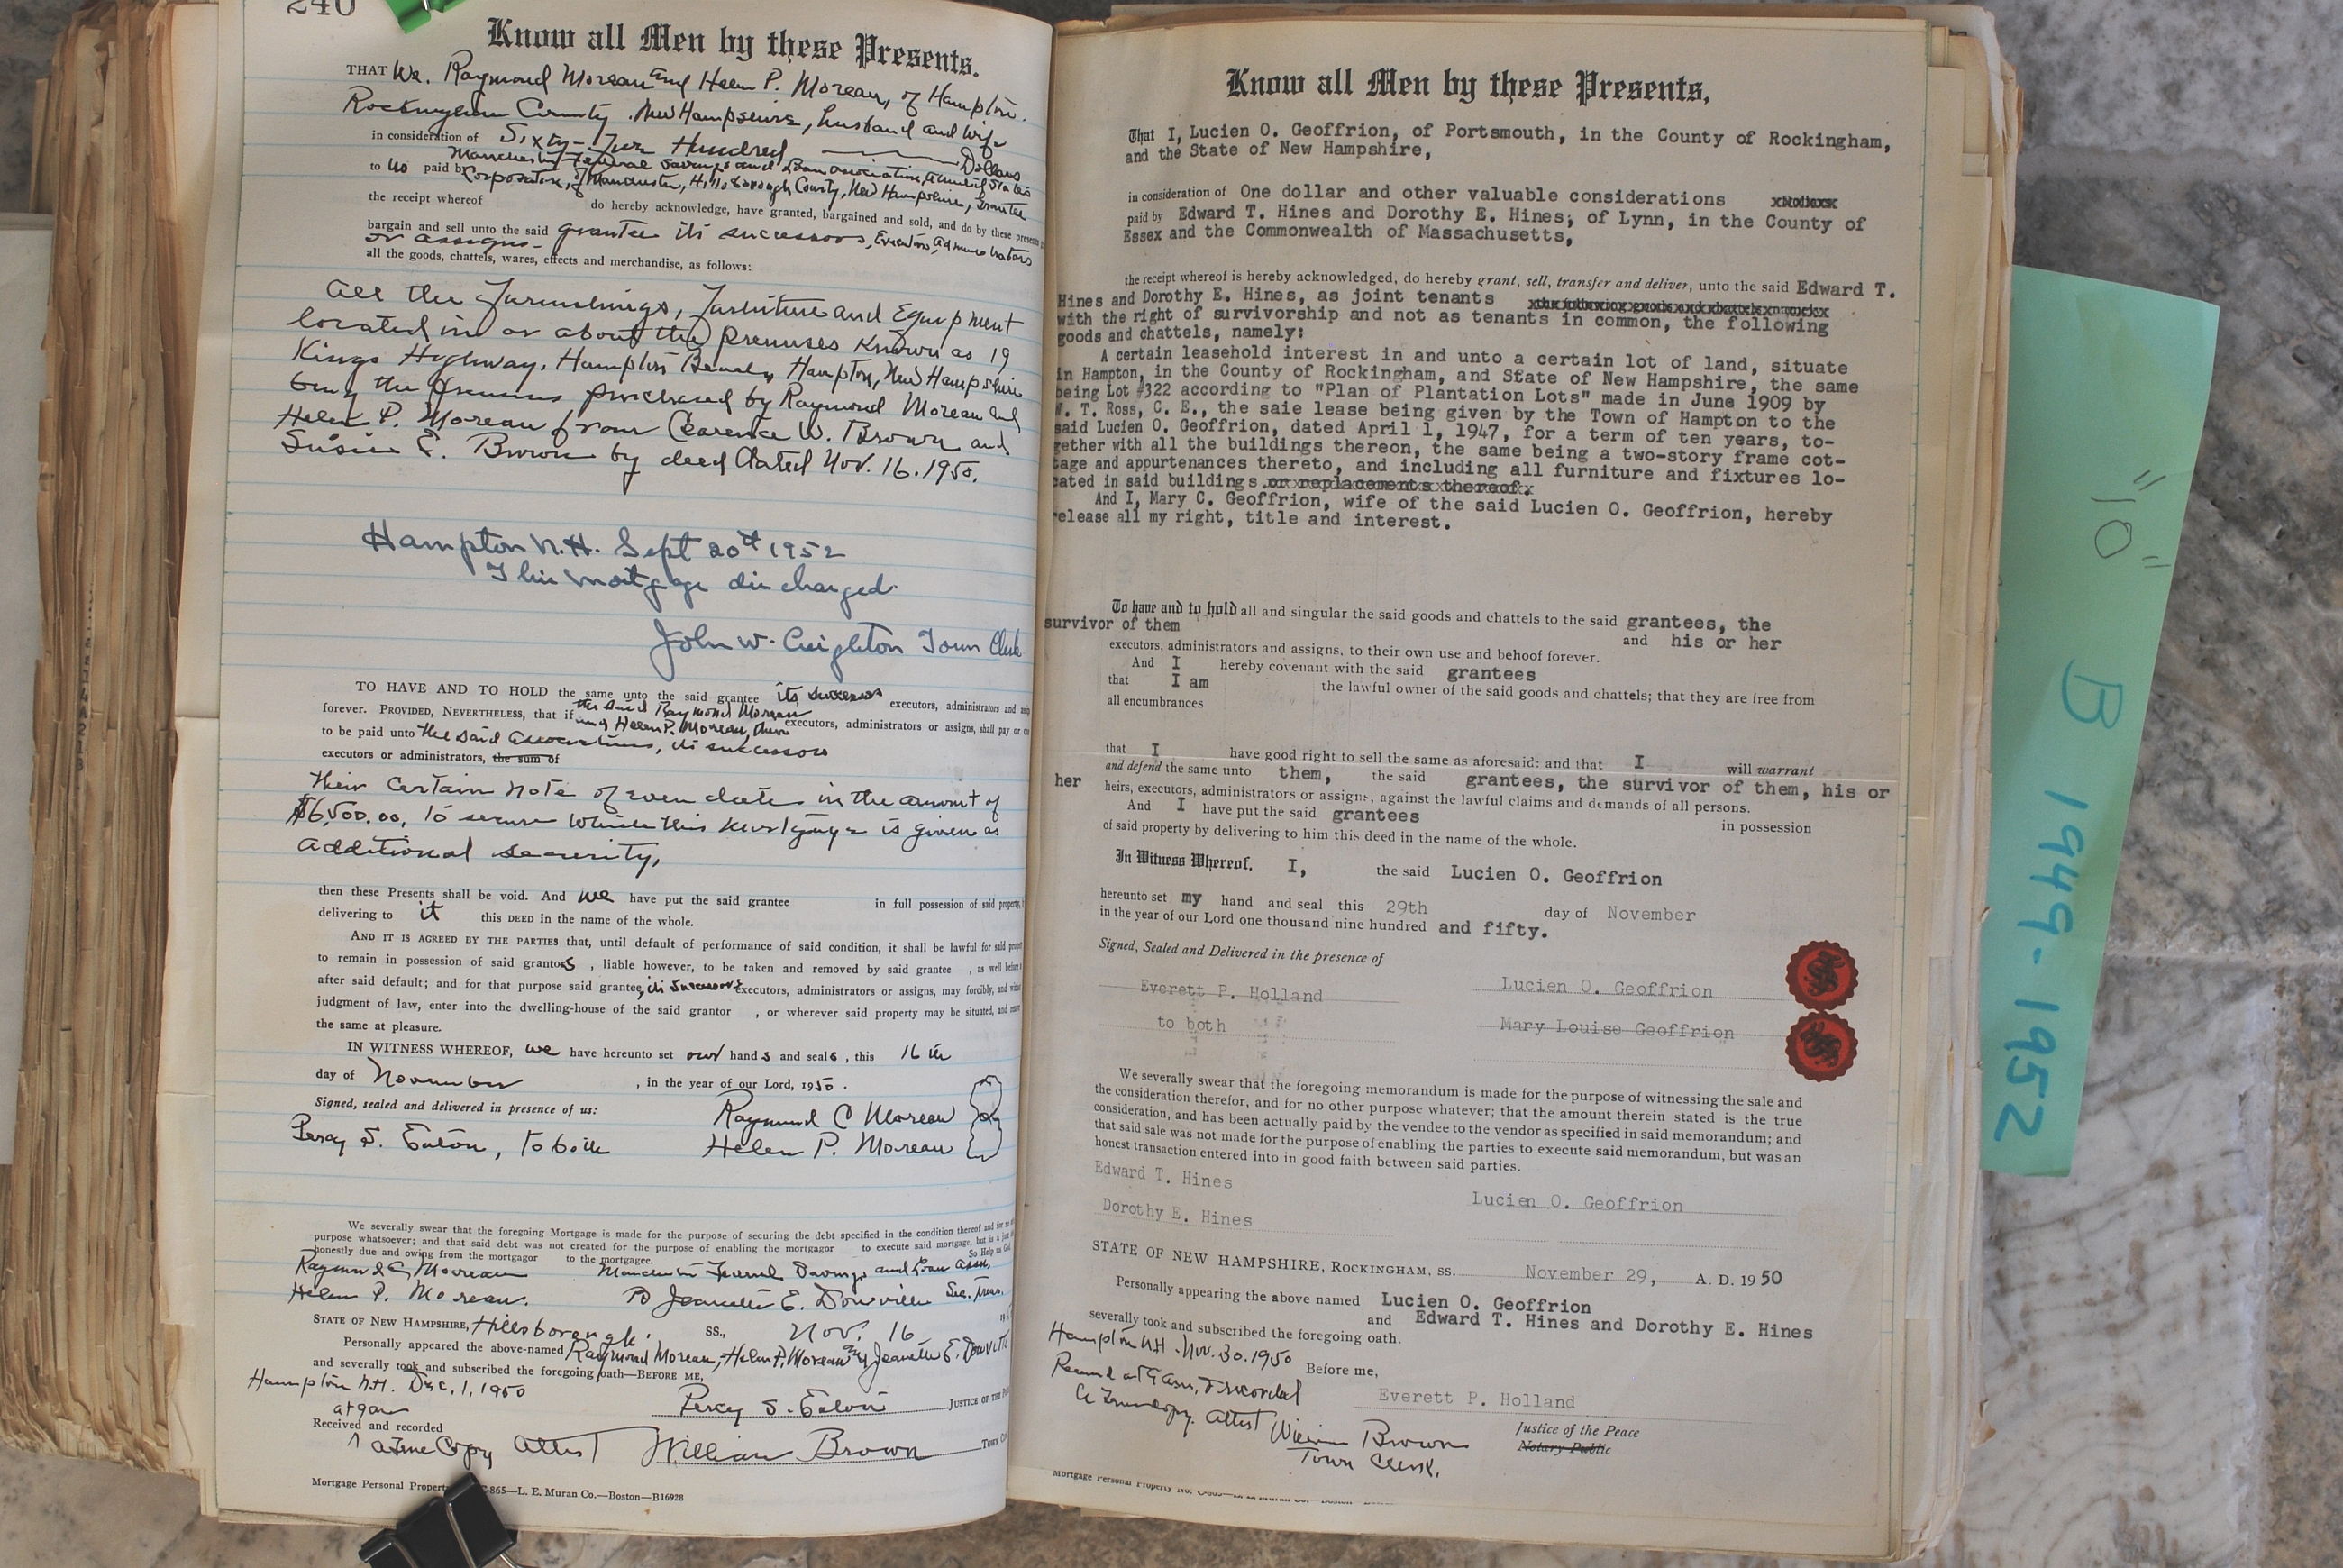 240
Know all Men by these Presents.
THAT We. Raymond Moreau and Helen P. Moreau, of Hampton.
Rockingham County. New Hampshire, husband and wife
in consideration of Sixty-five Hundred Dollars
to us paid by Manchester Federal Savings and Loan Association, a United States
Corporation, of Manchester, Hillsborough County, New Hampshire, Grantee
the receipt whereof do hereby acknowledge, have granted, bargained and sold, and do by these presents
bargain and sell unto the said grantee its successors, Executors, administrators
or assigns-
all the goods, chattels, wares, effects and merchandise, as follows:
All the Furnishings, Furniture and Equipment
located in or about the premises known as 19
Kings Highway, Hampton Beach, Hampton, New Hampshire
being the premises purchased by Raymond Moreau and
Helen P. Moreau from Clarence W. Brown and
Susie E. Brown by deed dated Nov. 16. 1950.
Hampton N.H. Sept 20th 1952
This mortgage discharged
John W. Creighton Town Clerk
TO HAVE AND TO HOLD the same unto the said grantee its successors executors, administrators and
forever. PROVIDED, NEVERTHELESS, that if the said Raymond Moreau
and Helen P. Moreau, their executors, administrators or assigns, shall pay or
to be paid unto the said Association, its successors
executors or administrators, the sum of
their certain note of even date in the amount of
$6,500.00, to secure which this mortgage is given as
additional security,
then these Presents shall be void. And we have put the said grantee in full possession of said property,
delivering to it this DEED in the name of the whole.
AND IT IS AGREED BY THE PARTIES that, until default of performance of said condition, it shall be lawful for said
to remain in possession of said grantors , liable however, to be taken and removed by said grantee , as well before
after said default; and for that purpose said grantee, its successors executors, administrators or assigns, may forcibly, and
judgment of law, enter into the dwelling-house of the said grantor , or wherever said property may be situated, and
the same at pleasure.
IN WITNESS WHEREOF, we have hereunto set our hands and seals, this 16th
day of November , in the year of our Lord, 1950.
Signed, sealed and delivered in presence of us:
Raymond C Moreau
Percy S. Eaton, to both Helen P. Moreau
We severally swear that the foregoing Mortgage is made for the purpose of securing the debt specified in the condition thereof and for no
purpose whatsoever; and that said debt was not created for the purpose of enabling the mortgagor to execute said mortgage, but is a
honestly due and owing from the mortgagor to the mortgagee. So Help us
Raymond C Moreau Manchester Federal Savings and Loan Assn.
Helen P. Moreau. By Jeanette E. Sec. Treas.
STATE OF NEW HAMPSHIRE, Hillsborough. SS., Nov. 16
Personally appeared the above-named Raymond Moreau, Helen P. Moreau and Jeanette E.
and severally took and subscribed the foregoing oath—BEFORE ME,
Hampton N.H. Dec, 1, 1950
at 9am Percy S. Eaton JUSTICE OF THE
Received and recorded
a true Copy Attest William Brown TOWN
Mortgage Personal Property C-865—L. E. Muran Co.—Boston—B16928
Know all Men by these Presents,
That I, Lucien O. Geoffrion, of Portsmouth, in the County of Rockingham,
and the State of New Hampshire,
in consideration of One dollar and other valuable considerations
paid by Edward T. Hines and Dorothy E. Hines, of Lynn, in the County of
Essex and the Commonwealth of Massachusetts,
the receipt whereof is hereby acknowledged, do hereby grant, sell, transfer and deliver, unto the said Edward T.
Hines and Dorothy E. Hines, as joint tenants
with the right of survivorship and not as tenants in common, the following
goods and chattels, namely:
A certain leasehold interest in and unto a certain lot of land, situate
in Hampton, in the County of Rockingham, and State of New Hampshire, the same
being Lot #322 according to "Plan of Plantation Lots" made in June 1909 by
W. T. Ross, C. E., the saie lease being given by the Town of Hampton to the
said Lucien O. Geoffrion, dated April 1, 1947, for a term of ten years, to-
gether with all the buildings thereon, the same being a two-story frame cot-
tage and appurtenances thereto, and including all furniture and fixtures lo-
cated in said buildings or replacements thereof.
And I, Mary C. Geoffrion, wife of the said Lucien O. Geoffrion, hereby
release all my right, title and interest.
To have and to hold all and singular the said goods and chattels to the said grantees, the
survivor of them and his or her
executors, administrators and assigns, to their own use and behoof forever.
And I hereby covenant with the said grantees
that I am the lawful owner of the said goods and chattels; that they are free from
all encumbrances
that I have good right to sell the same as aforesaid: and that I will warrant
and defend the same unto them, the said grantees, the survivor of them, his or
her heirs, executors, administrators or assigns, against the lawful claims and demands of all persons.
And I have put the said grantees in possession
of said property by delivering to him this deed in the name of the whole.
In Witness Whereof, I, the said Lucien O. Geoffrion
hereunto set my hand and seal this 29th day of November
in the year of our Lord one thousand nine hundred and fifty.
Signed, Sealed and Delivered in the presence of
Everett P. Holland Lucien O. Geoffrion
to both Mary Louise Geoffrion
We severally swear that the foregoing memorandum is made for the purpose of witnessing the sale and
the consideration therefor, and for no other purpose whatever; that the amount therein stated is the true
consideration, and has been actually paid by the vendee to the vendor as specified in said memorandum; and
that said sale was not made for the purpose of enabling the parties to execute said memorandum, but was an
honest transaction entered into in good faith between said parties.
Edward T. Hines
Lucien O. Geoffrion
Dorothy E. Hines
STATE OF NEW HAMPSHIRE, ROCKINGHAM, SS. November 29, A. D. 1950
Personally appearing the above named Lucien O. Geoffrion
and Edward T. Hines and Dorothy E. Hines
severally took and subscribed the foregoing oath.
Hampton N.H. Nov. 30. 1950 Before me,
Received at 9 am, & recorded
Everett P. Holland
A true copy. Attest William Brown
Town Clerk.
Justice of the Peace
Notary Public
Mortgage Personal Property No.
"10" B 1949-1952